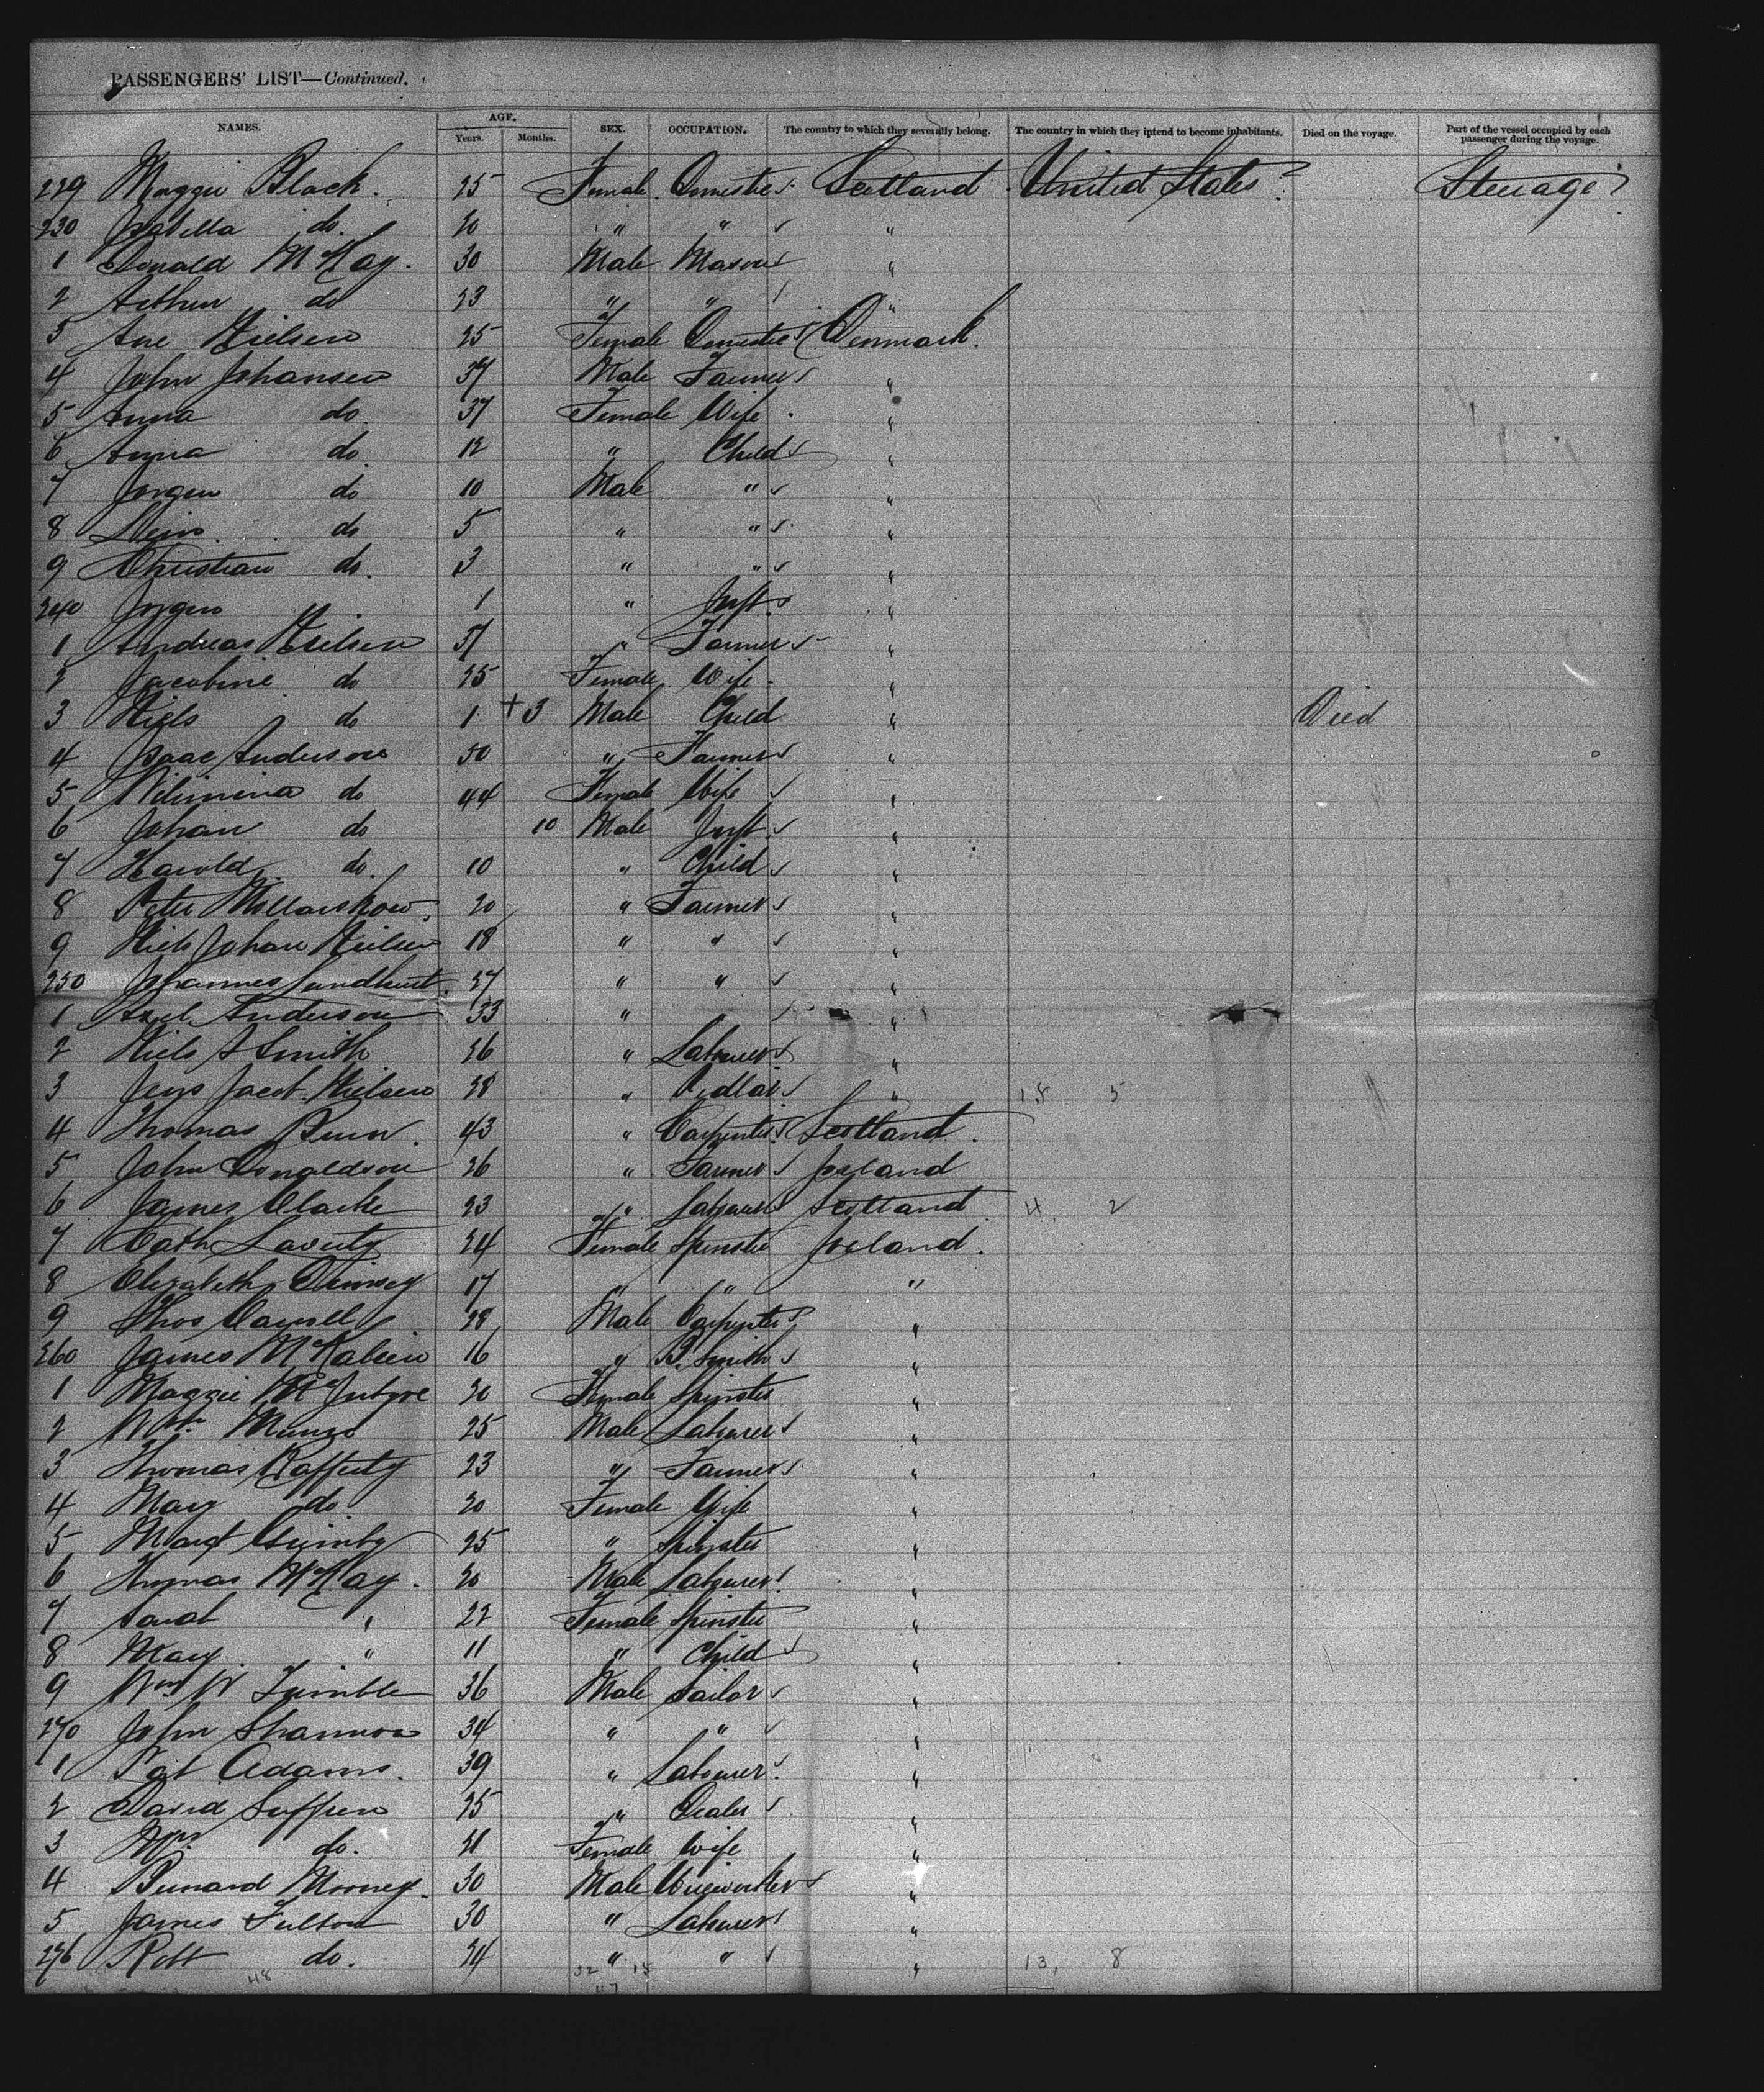 PASSENGERS' LIST—Continued.
NAMES. AGE. Years. Months. SEX. OCCUPATION. The country to which they severally belong. The country in which they intend to become inhabitants. Died on the voyage. Part of the vessel occupied by each passenger during the voyage.
229 Maggie Black. 25 Female Domestic Scotland United States Steerage
230 Isabella do. 20 " " "
1 Donald McKay. 30 Male Mason "
2 Arthur do 23 " " "
3 Ane Nielsen 25 Female Domestic Denmark.
4 John Johansen 37 Male Farmer "
5 Anna do. 37 Female Wife "
6 Anna do. 12 " Child "
7 Jorgen do 10 Male " "
8 do 5 " " "
9 Christian do. 3 " " "
240 Jorgen 1 " Inft. "
1 Andreas Nielsen " Farmer "
2 Jacobine do 25 Female Wife "
3 Niels do 1 + 3 Male Child " Died
4 Isaac Anderson 50 " Farmer "
5 Vilimina do 44 Female Wife "
6 Johan do 10 Male Inft. "
7 Harold do. 10 " Child "
8 Peter 20 " Farmer "
9 Niels Johan Nielsen 18 " " "
250 Johannes 27 " " "
1 Axel Anderson 33 " "
2 Niels J Smith 26 " Labourer "
3 Jens Jacob Nielsen 28 " Pedlar " 18 5
4 Thomas 43 " Carpenter Scotland.
5 John Donaldson 26 " Farmer Ireland
6 James Clarke 23 " Labourer Scotland. 4, 2
7 Cath Laverty 24 Female Spinster Ireland.
8 Elizabeth 17 " " "
9 Thos 28 Male Carpenter "
260 James 16 " B. Smith "
1 Maggie McIntyre 20 Female Spinster "
2 Wm. Munro 25 Male Labourer "
3 Thomas Rafferty 23 " Farmer "
4 Mary do. 20 Female Wife "
5 Margt 25 " Spinster "
6 Thomas McKay. 20 Male Labourer "
7 Sarah " 22 Female Spinster "
8 Mary " 11 " Child "
9 Wm W Trimble 36 Male Sailor "
270 John Shannon 34 " " "
1 Pat Adams. 39 " Labourer "
2 David Suffren 25 " Dealer "
3 Mrs do. 21 Female Wife "
4 Bernard Mooney. 30 Male Wireworker "
5 James Fulton 30 " Labourer "
276 Robt do. 24 " " " 13, 8
48 32 15
47